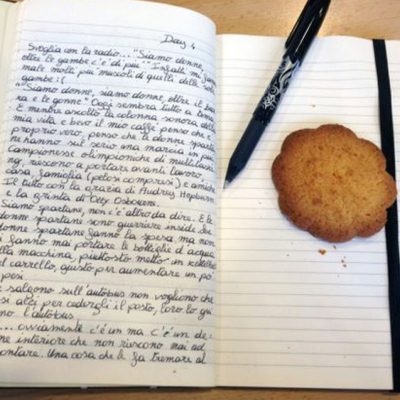 Day 4
Sveglia con la radio... "Siamo donne,
oltre le gambe c'è di più" Infatti mi fanno
male molti più muscoli di quelli delle sole
gambe :(
"Siamo donne, siamo donne, oltre il
na e le gonne" Oggi sembra tutto a tema
E mentre ascolto la colonna sonora della
mia vita e bevo il mio caffè penso che è
proprio vero, penso che le donne sparta
ne hanno sul serio una marcia in più
Campionesse olimpioniche di multitaski
ng, riescono a portare avanti lavoro,
casa, famiglia (pelosi compresi) e amiche
il tutto con la grazia di Audrey Hepburn
e la grinta di Ozzy Osborne.
Siamo spartane, non c'è altro da dire. E le
donne spartane sono guerriere inside. Le
donne spartane fanno la spesa ma non
fanno mai portare le bottiglie d'acqua
alla macchina, piuttosto metto un kettlebell
nel carrello, giusto per aumentare un po'
pesi
salgono sull'autobus non vogliono che
si alzi per cedergli il posto, loro lo
no l'autobus.
... ovviamente c'è un ma. C'è un de-
ne interiore che non riescono mai ad
ontare. Una cosa che le fa tremare al